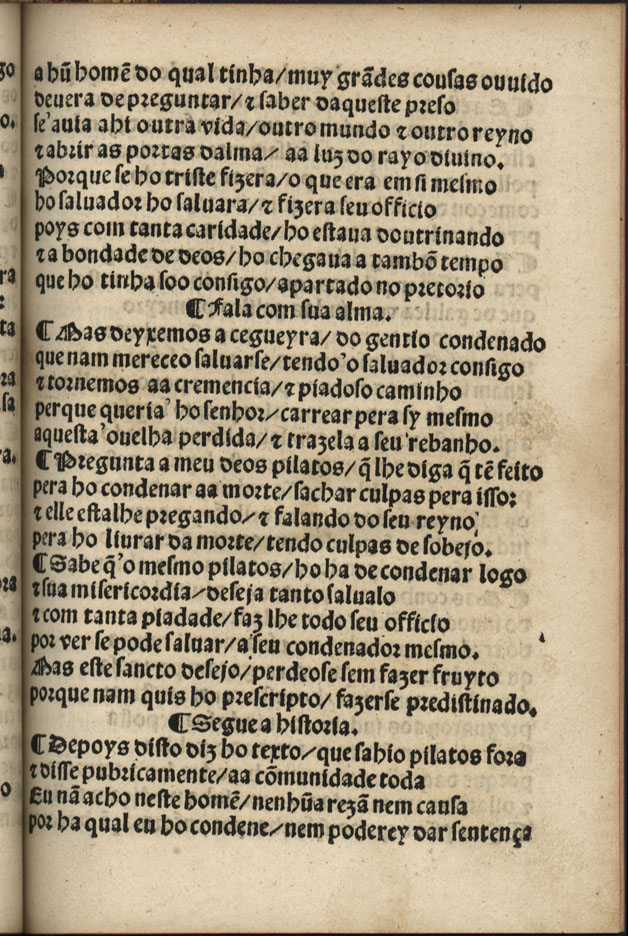 a hũ homẽ do qual tinha/muy grãdes cousas ouuido
deuera de preguntar/⁊ saber daqueste preso
se'auia ahi outra vida/outro mundo ⁊ outro reyno
⁊ abrir as portas dalma/ aa luz do rayo diuino.
Porque se ho triste fizera/o que era em si mesmo
ho saluador ho saluara/⁊ fizera seu officio
poys com tanta caridade/ho estaua doutrinando
⁊ a bondade de deos/ho chegaua a tambõ tempo
que ho tinha soo consigo/apartado no pretorio
¶ Fala com sua alma.
¶ Mas deyxemos a cegueyra/ do gentio condenado
que nam mereceo saluarse/tendo'o saluador consigo
⁊ tornemos aa cremencia/⁊ piadoso caminho
perque queria' ho senhor/carrear pera sy mesmo
aquesta'ouelha perdida/⁊ trazela a seu rebanho.
¶ Pregunta a meu deos pilatos/q̃ lhe diga q̃ tẽ feito
pera ho condenar aa morte/sachar culpas pera isso:
⁊ elle estalhe pregando/⁊ falando do seu reyno
pera ho liurar da morte/tendo culpas de sobejo.
¶ Sabe q̃'o mesmo pilatos/ho ha de condenar logo
⁊ sua misericordia/deseja tanto salualo
⁊ com tanta piadade/faz lhe todo seu officio
por ver se pode saluar/a'seu condenador mesmo.
Mas este sancto desejo/perdeose sem fazer fruyto
porque nam quis ho prescripto/ fazerse predistinado.
¶ Segue a historia.
¶ Depoys disto diz ho texto/que sahio pilatos fora
⁊ disse pubricamente/aa cõmunidade toda
Eu nã acho neste homẽ/nenhũa rezã nem causa
por ha qual eu ho condene/nem poderey dar sentença